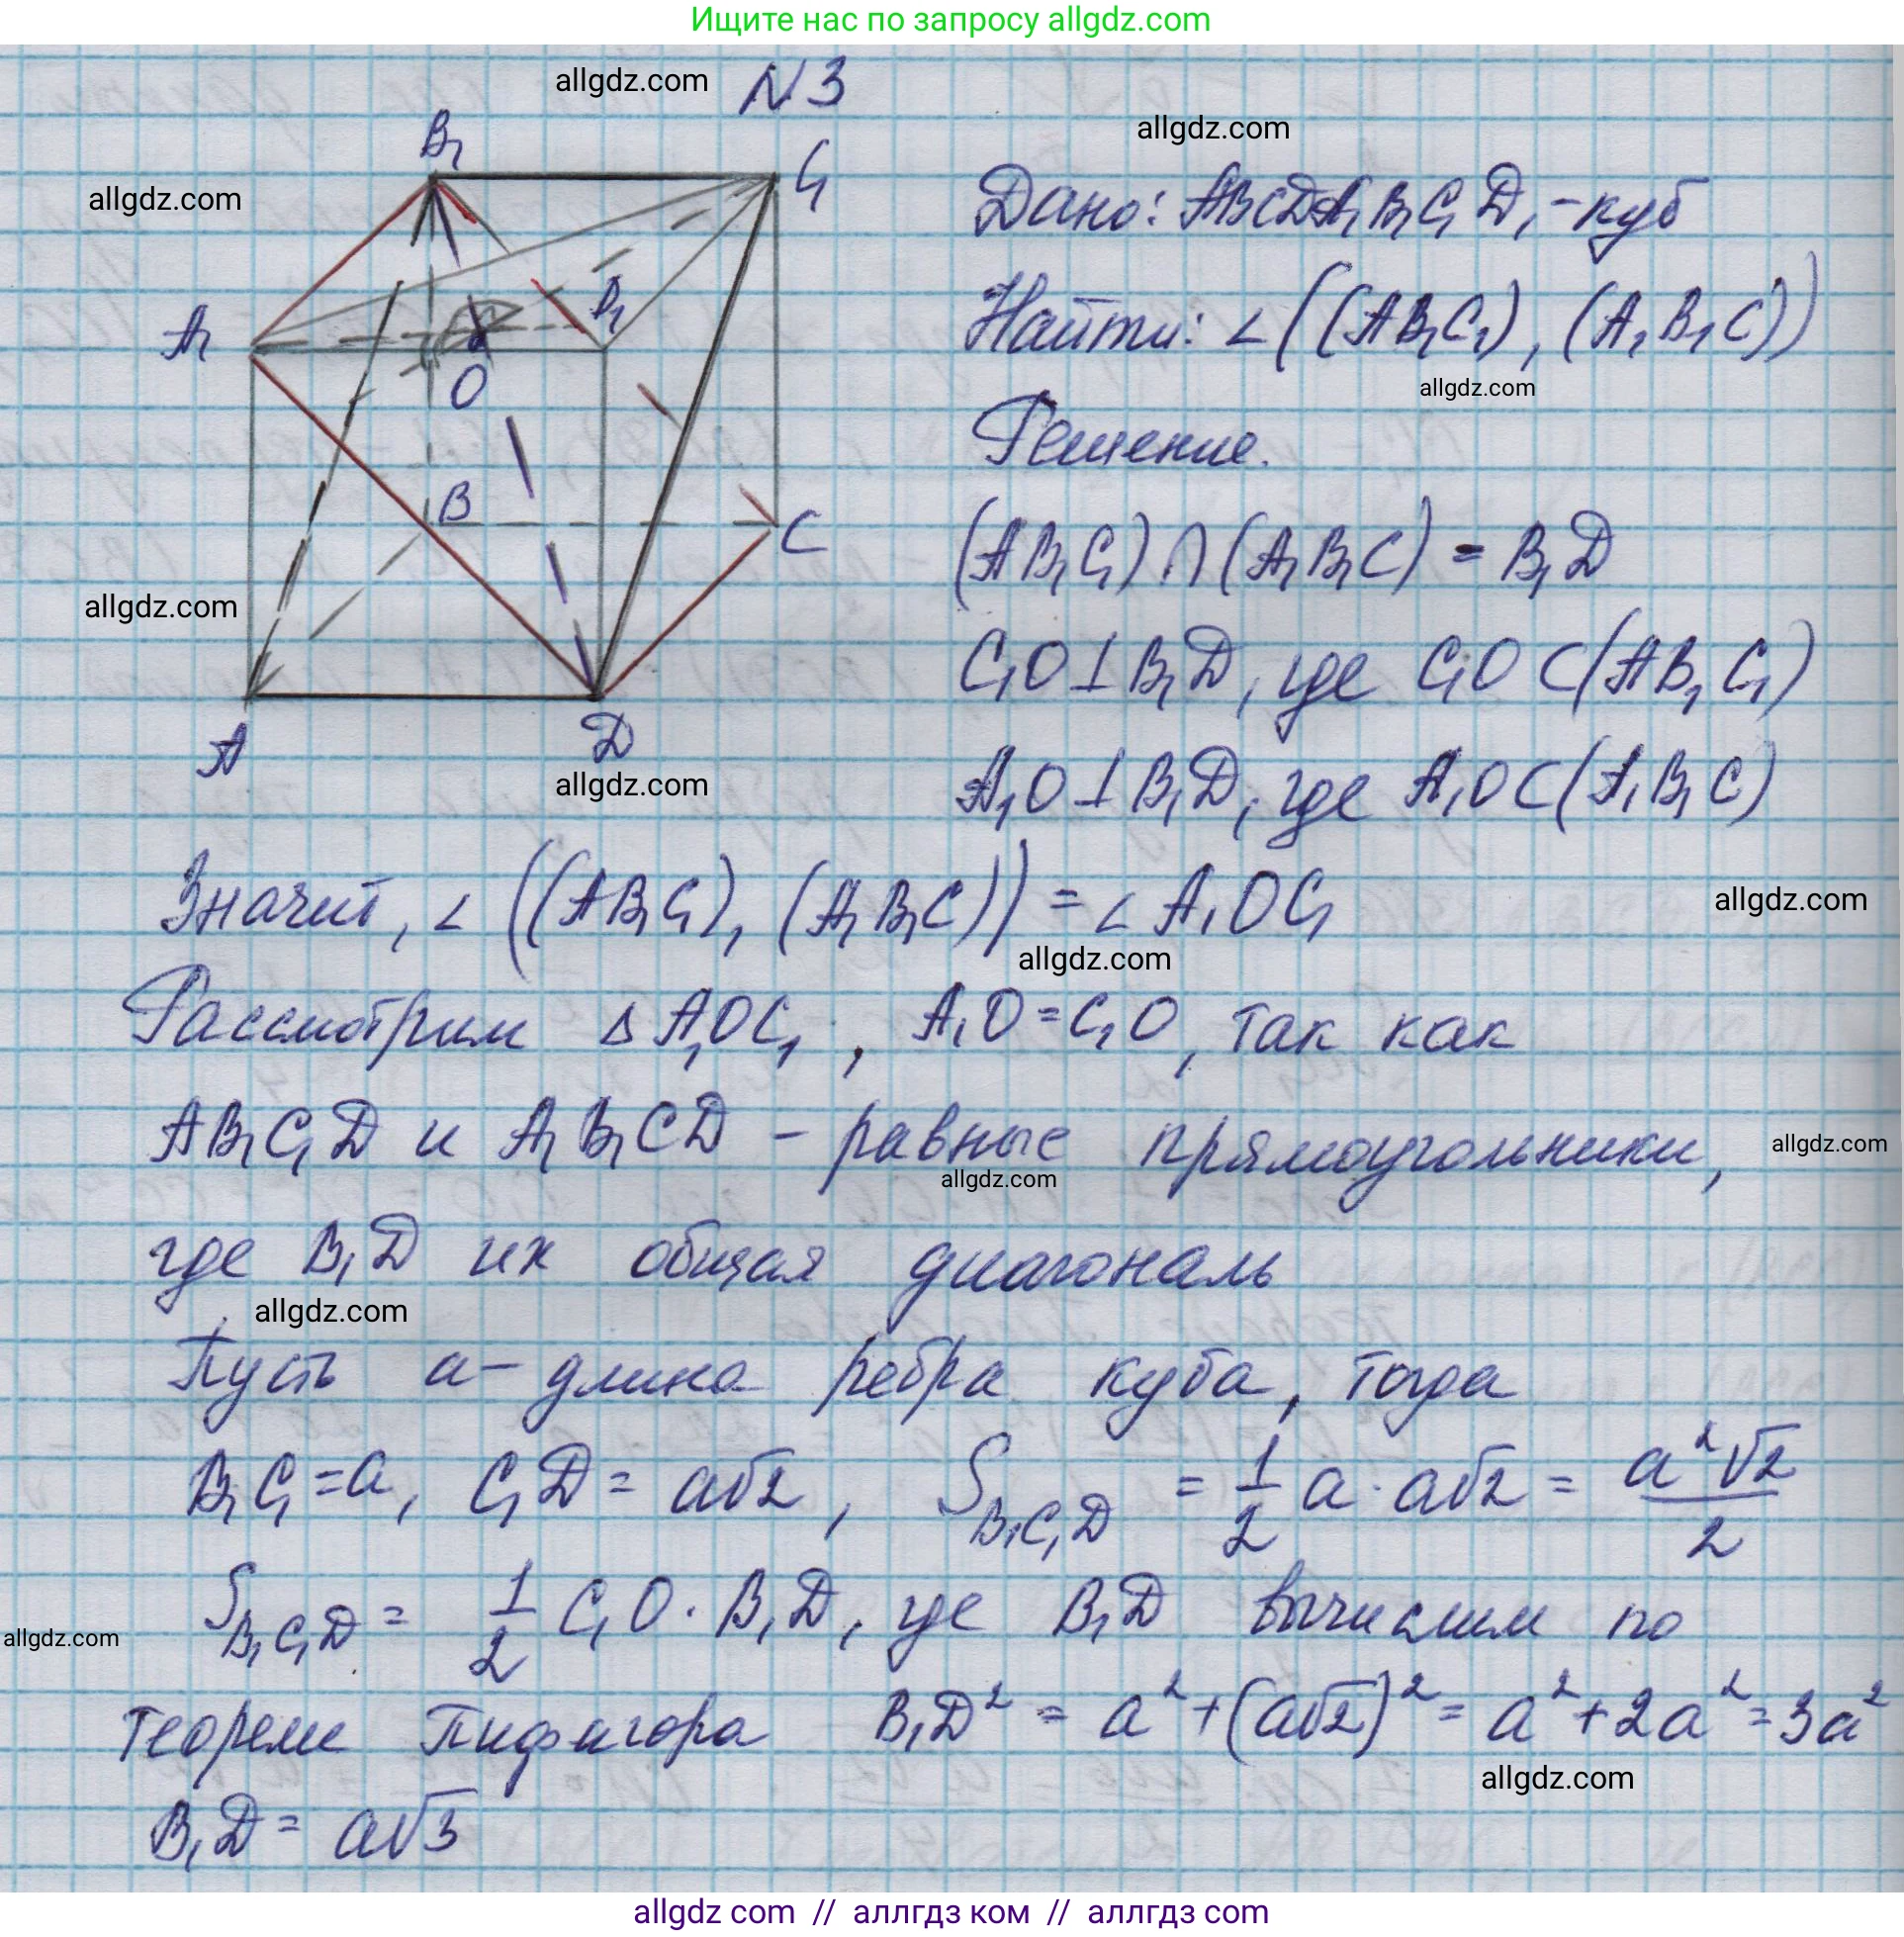 Ищите нас по запросу allgdz.com
allgdz.com
N 3
allgdz.com
allgdz.com
B₁
C₁
A₁
D₁
O
B
C
A
D
allgdz.com
allgdz.com
Дано: ABCDA₁B₁C₁D₁ - куб
Найти: ∠((AB₁C₁), (A₁B₁C))
allgdz.com
Решение.
(AB₁C₁) ∩ (A₁B₁C) = B₁D
C₁O ⊥ B₁D, где C₁O ⊂ (AB₁C₁)
A₁O ⊥ B₁D, где A₁O ⊂ (A₁B₁C)
Значит, ∠((AB₁C₁), (A₁B₁C)) = ∠A₁OC₁
allgdz.com
allgdz.com
Рассмотрим Δ A₁OC₁, A₁O = C₁O, так как
AB₁C₁D и A₁B₁CD - равные прямоугольники,
allgdz.com
allgdz.com
где B₁D их общая диагональ
allgdz.com
Пусть a - длина ребра куба, тогда
B₁C₁ = a, C₁D = a√2, S_B₁C₁D = 1/2 a · a√2 = a²√2/2
S_B₁C₁D = 1/2 C₁O · B₁D, где B₁D вычислим по
allgdz.com
теореме Пифагора B₁D² = a² + (a√2)² = a² + 2a² = 3a²
allgdz.com
B₁D = a√3
allgdz com // аллгдз ком // аллгдз com